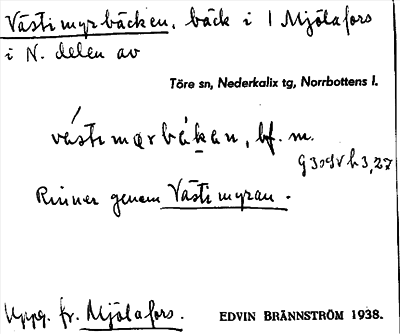 Västimyrbäcken, bäck i 1 Mjölafors
i N. delen av
Töre sn, Nederkalix tg, Norrbottens l.
vástimərbǻkan, bf. m.
Rinner genom Västimyran.
Uppg. fr. Mjölafors.
EDVIN BRÄNNSTRÖM 1938.